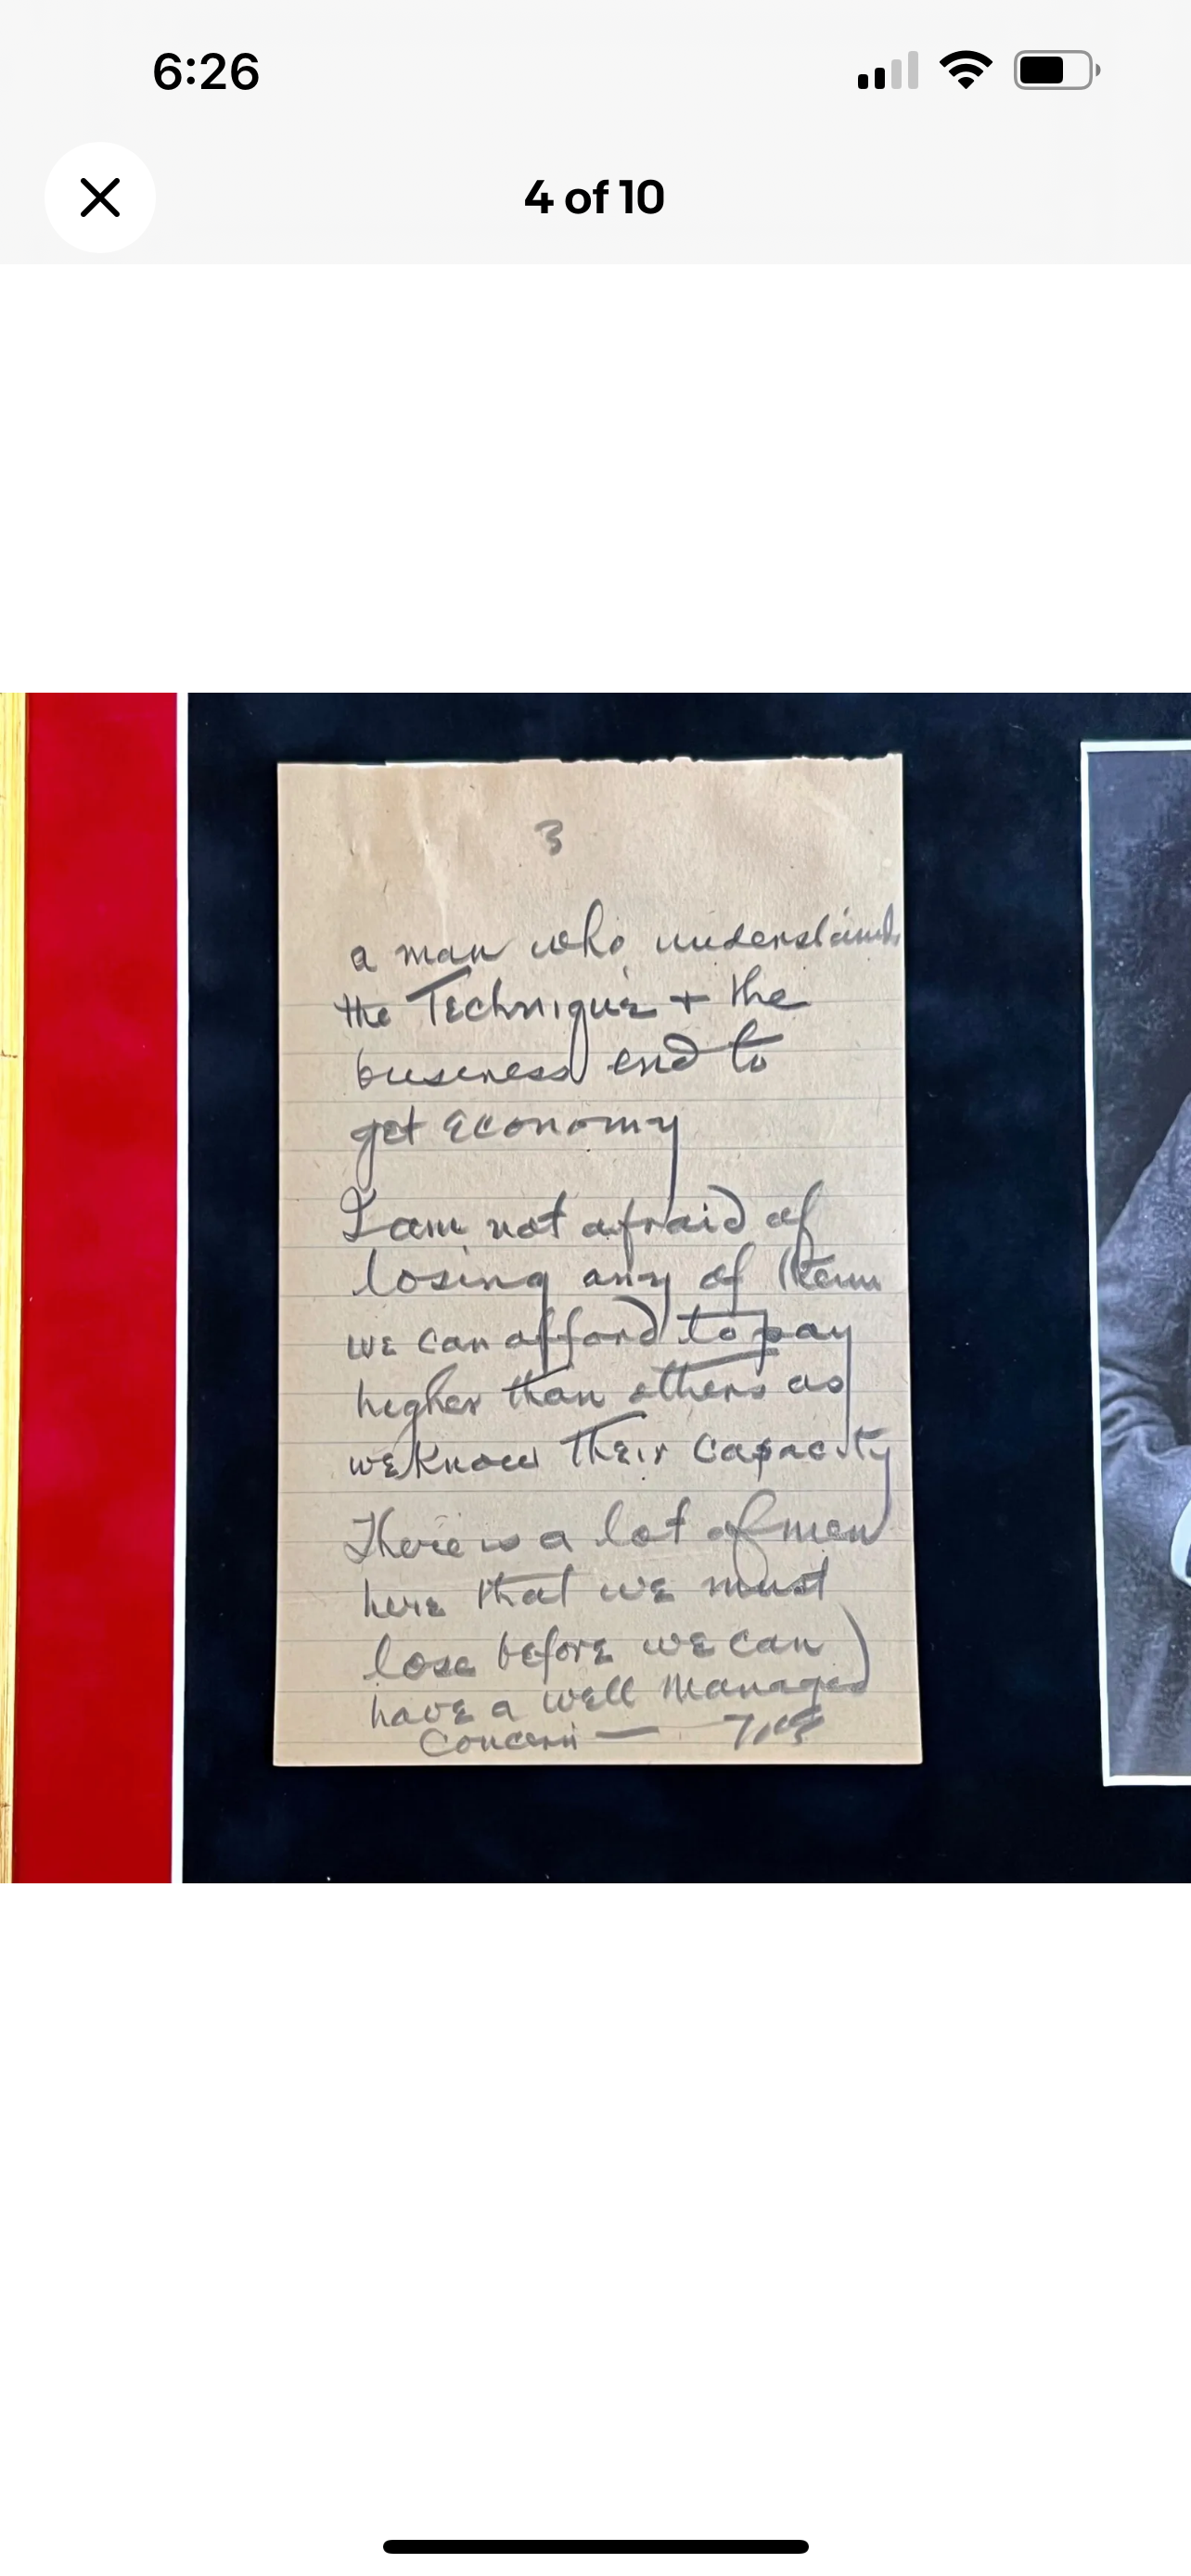 6:26
4 of 10
3
a man who understands
the Technique + the
business end to
get economy
I am not afraid of
losing any of them
we can afford to pay
higher than others as
we know Their Capacity
There is a lot of men
here that we must
lose before we can
have a well Managed
Concern —